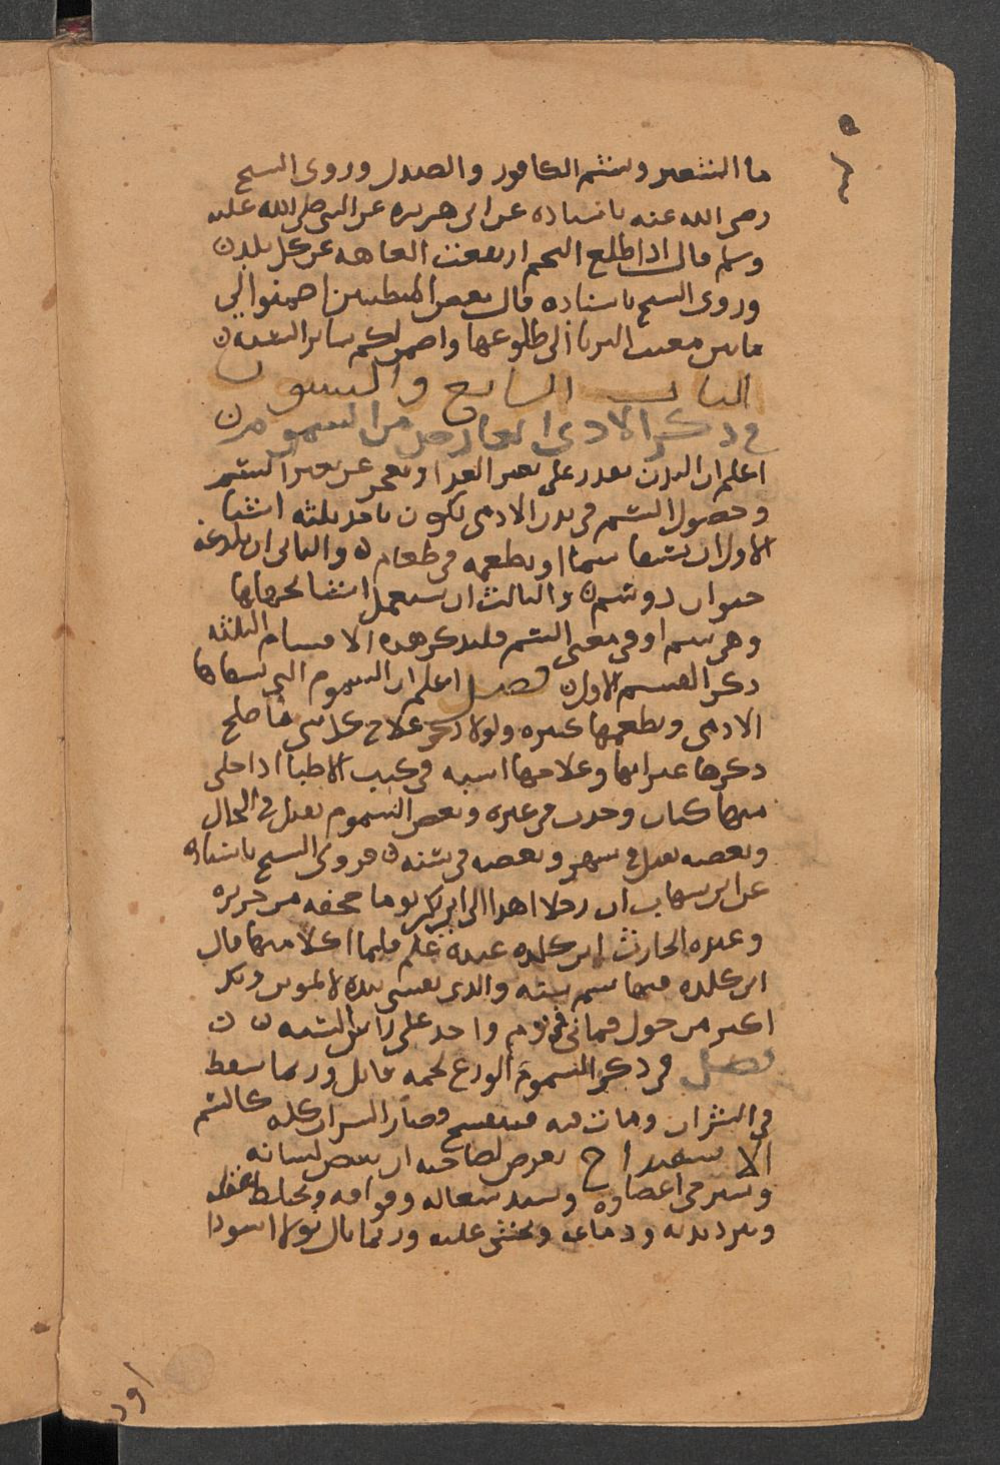 ما الشعير ويشم الكافور والصندل وروى الشيخ
رضى الله عنه باسناده عن ابى هريره عن النبى صلى الله عليه
وسلم قال اذا طلع النجم ارتفعت العاهه عن كل بلد ن
وروى الشيخ باسناده قال بعض المتطببين اضمنوا لى
ما بين مغيب الثريا الى طلوعها واضمن لكم سائر السنه ن
الباب السابع والستون
فى ذكر الاذى العارض من السموم ن
اعلم ان البدن يقدر على تغيير الغذا ويعجز عن تغيير السم
وحصول السم فى بدن الادمى يكون باحد ثلثه اشيا
الاول ان يسقا سما او يطعمه فى طعام ن والثانى ان يلدغه
حيوان ذو سم ن والثالث ان يستعمل اشيا
وهى سم او فى معنى السم فلنذكر هذه الاقسام الثلثه
ذكر القسم الاول ن فصل اعلم ان السموم التى يسقاها
الادمى ويطعمها كثيره ولولا ذكر علاج كل شى ما صلح
ذكرها غير انها وعلاجها اشيه فى كتب الاطبا اذا خلى
منها كتاب وجدت فى غيره وبعض السموم يقتل فى الحال
وبعضه يقتل فى شهر وبعضه فى سنه ن فروى الشيخ باسناده
عن ابن شهاب ان رجلا اهدا الى ابى بكر يوما صحفه من خزيره
وعنده الحارث ابن كلده عنده علم فلما اكلا منها قال
ابن كلده فيها سم سنه والذى نفسى بيده لا لموتى وبكر
اكثر من حول فماتا فى يوم واحد على راس السنه ن ن
فصل فى ذكر السموم الوزغ لحمه قاتل وربما سقط
فى الشراب ومات فيه فيتفسخ فصار الشراب كله كالسم
الاسفيداج يعرض لصاحبه ان يبيض لسانه
وتسترخى اعضاوه ويشتد سعاله وفواقه ويختلط عقله
ويبرد بدنه ودماغه ويغشى عليه وربما بال بولا اسودا